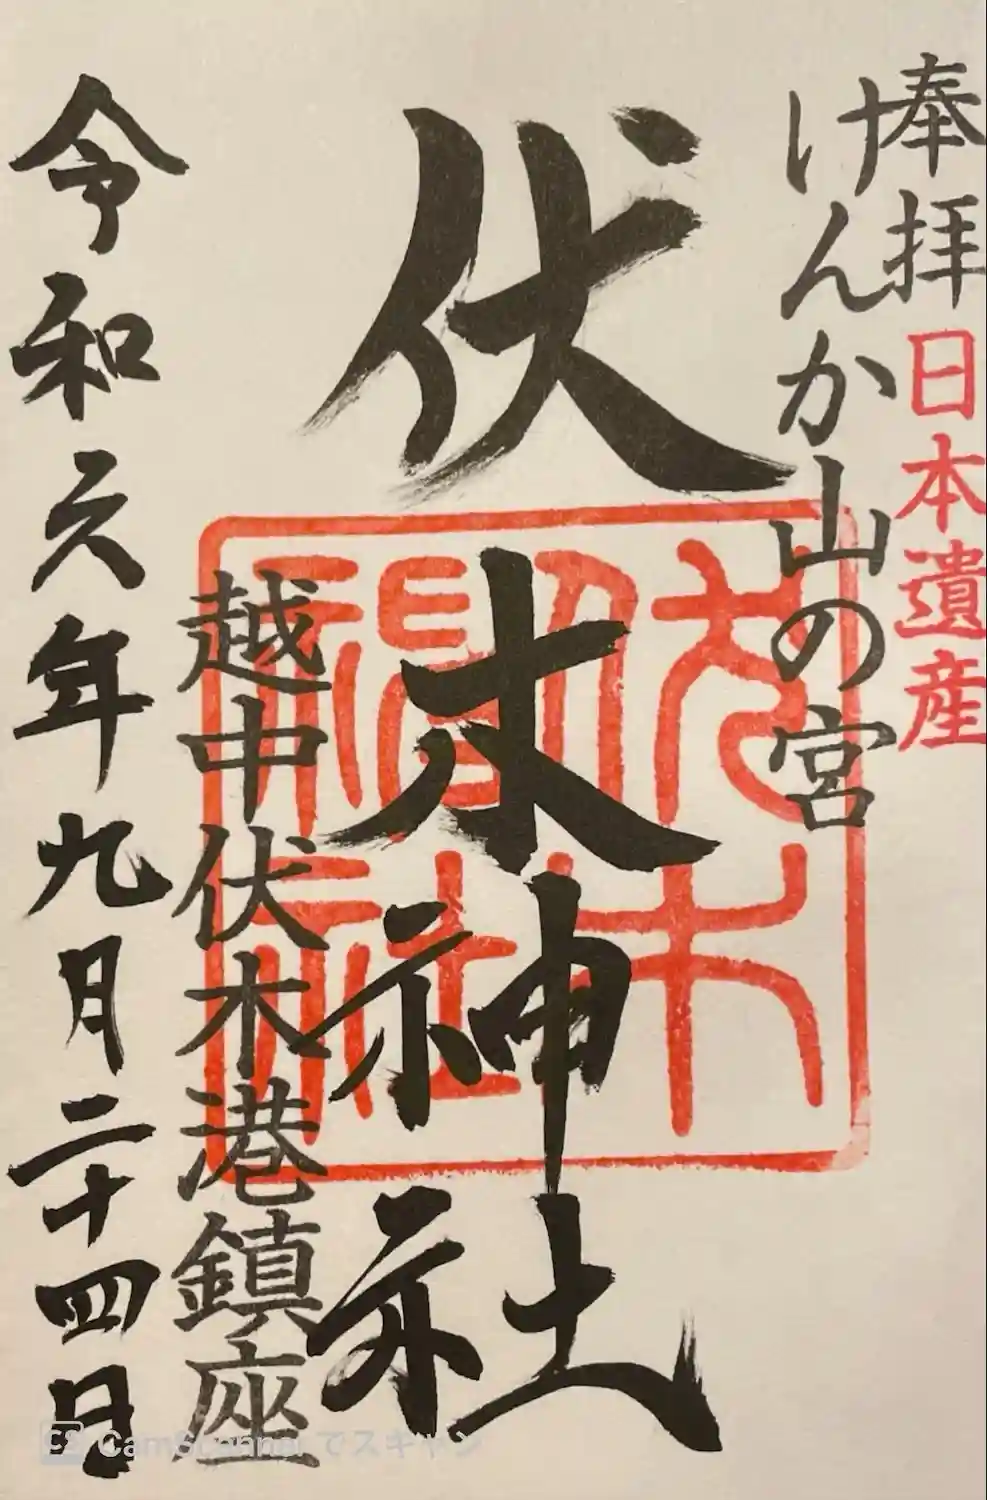 奉拝
日本遺産
けんか山の宮
伏木神社
伏木神社
越中伏木港鎮座
令和元年九月二十四日
CS CamScanner でスキャン